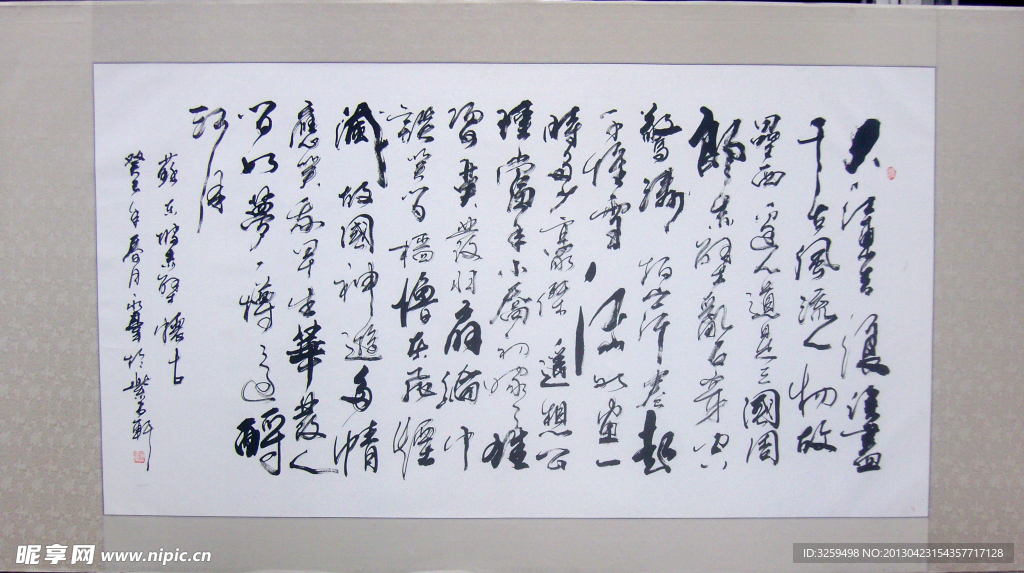 大江東去浪淘盡
千古風流人物故
壘西邊人道是三國周
郎赤壁亂石穿空
驚濤拍岸卷起
千堆雪江山如畫一
時多少豪傑遙想公
瑾當年小喬初嫁了雄
姿英發羽扇綸巾
談笑間檣櫓灰飛煙
滅故國神遊多情
應笑我早生華發人
間如夢一樽還酹
江月
蘇東坡赤壁懷古
癸巳年春月於軒
昵享网 www.nipic.cn
ID:3259498 NO:20130423154357717128